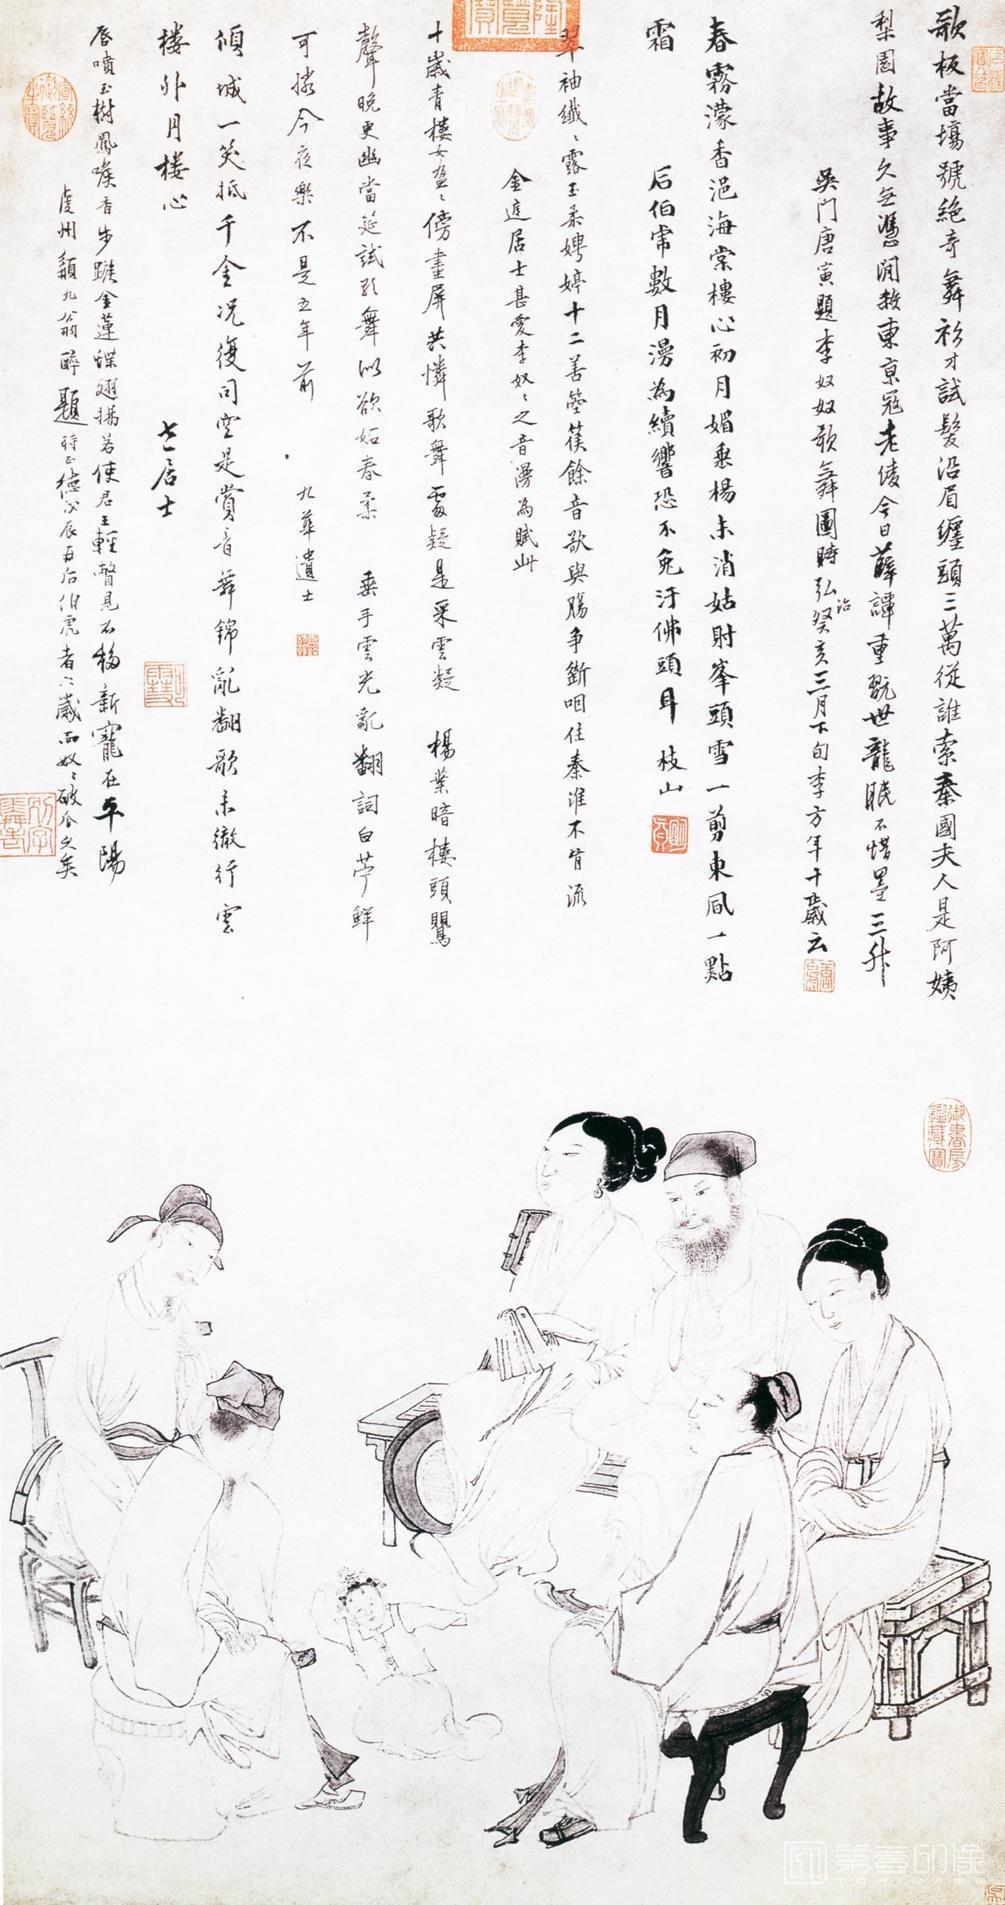 歌板當場號絕奇舞衫才試髮沿眉纏頭三萬從誰索秦國夫人是阿姨
梨園故事久無憑閒教東京寇老倰今日薛譚重翫世龍眠不惜墨三升
吳門唐寅題李奴奴歌舞圖時弘治癸亥三月下旬李方年十歲云
春霧濛香浥海棠樓心初月媚垂楊未消姑射峯頭雪一剪東風一點
霜
后伯常數月漫為續響恐不免汙佛頭耳 枝山
翠袖纖纖露玉柔娉婷十二善箜篌餘音欲與腸爭斷咽住秦淮不肯流
金庭居士甚愛李奴奴之音漫為賦此
十歲青樓女盈盈傍畫屏共憐歌舞處疑是采雲凝 楊葉暗樓頭鶯
聲晚更幽當筵試歌舞似欲妬春柔 垂手雲光亂翻詞白苧鮮
可憐今夜樂不是五年前
九華遺士
傾城一笑抵千金況復司空是賞音舞錦亂翻歌未徹行雲
樓外月樓心
士居士
唇噴玉樹鳳喉香步蹴金蓮蝶翅揚若使君王輕瞥見不移新寵在平陽
虔州 九翁醉題時正德戊辰 后伯虎者六歲而奴奴破瓜久矣
御書房鑑藏寶
第壹印象
TOPIMAGE